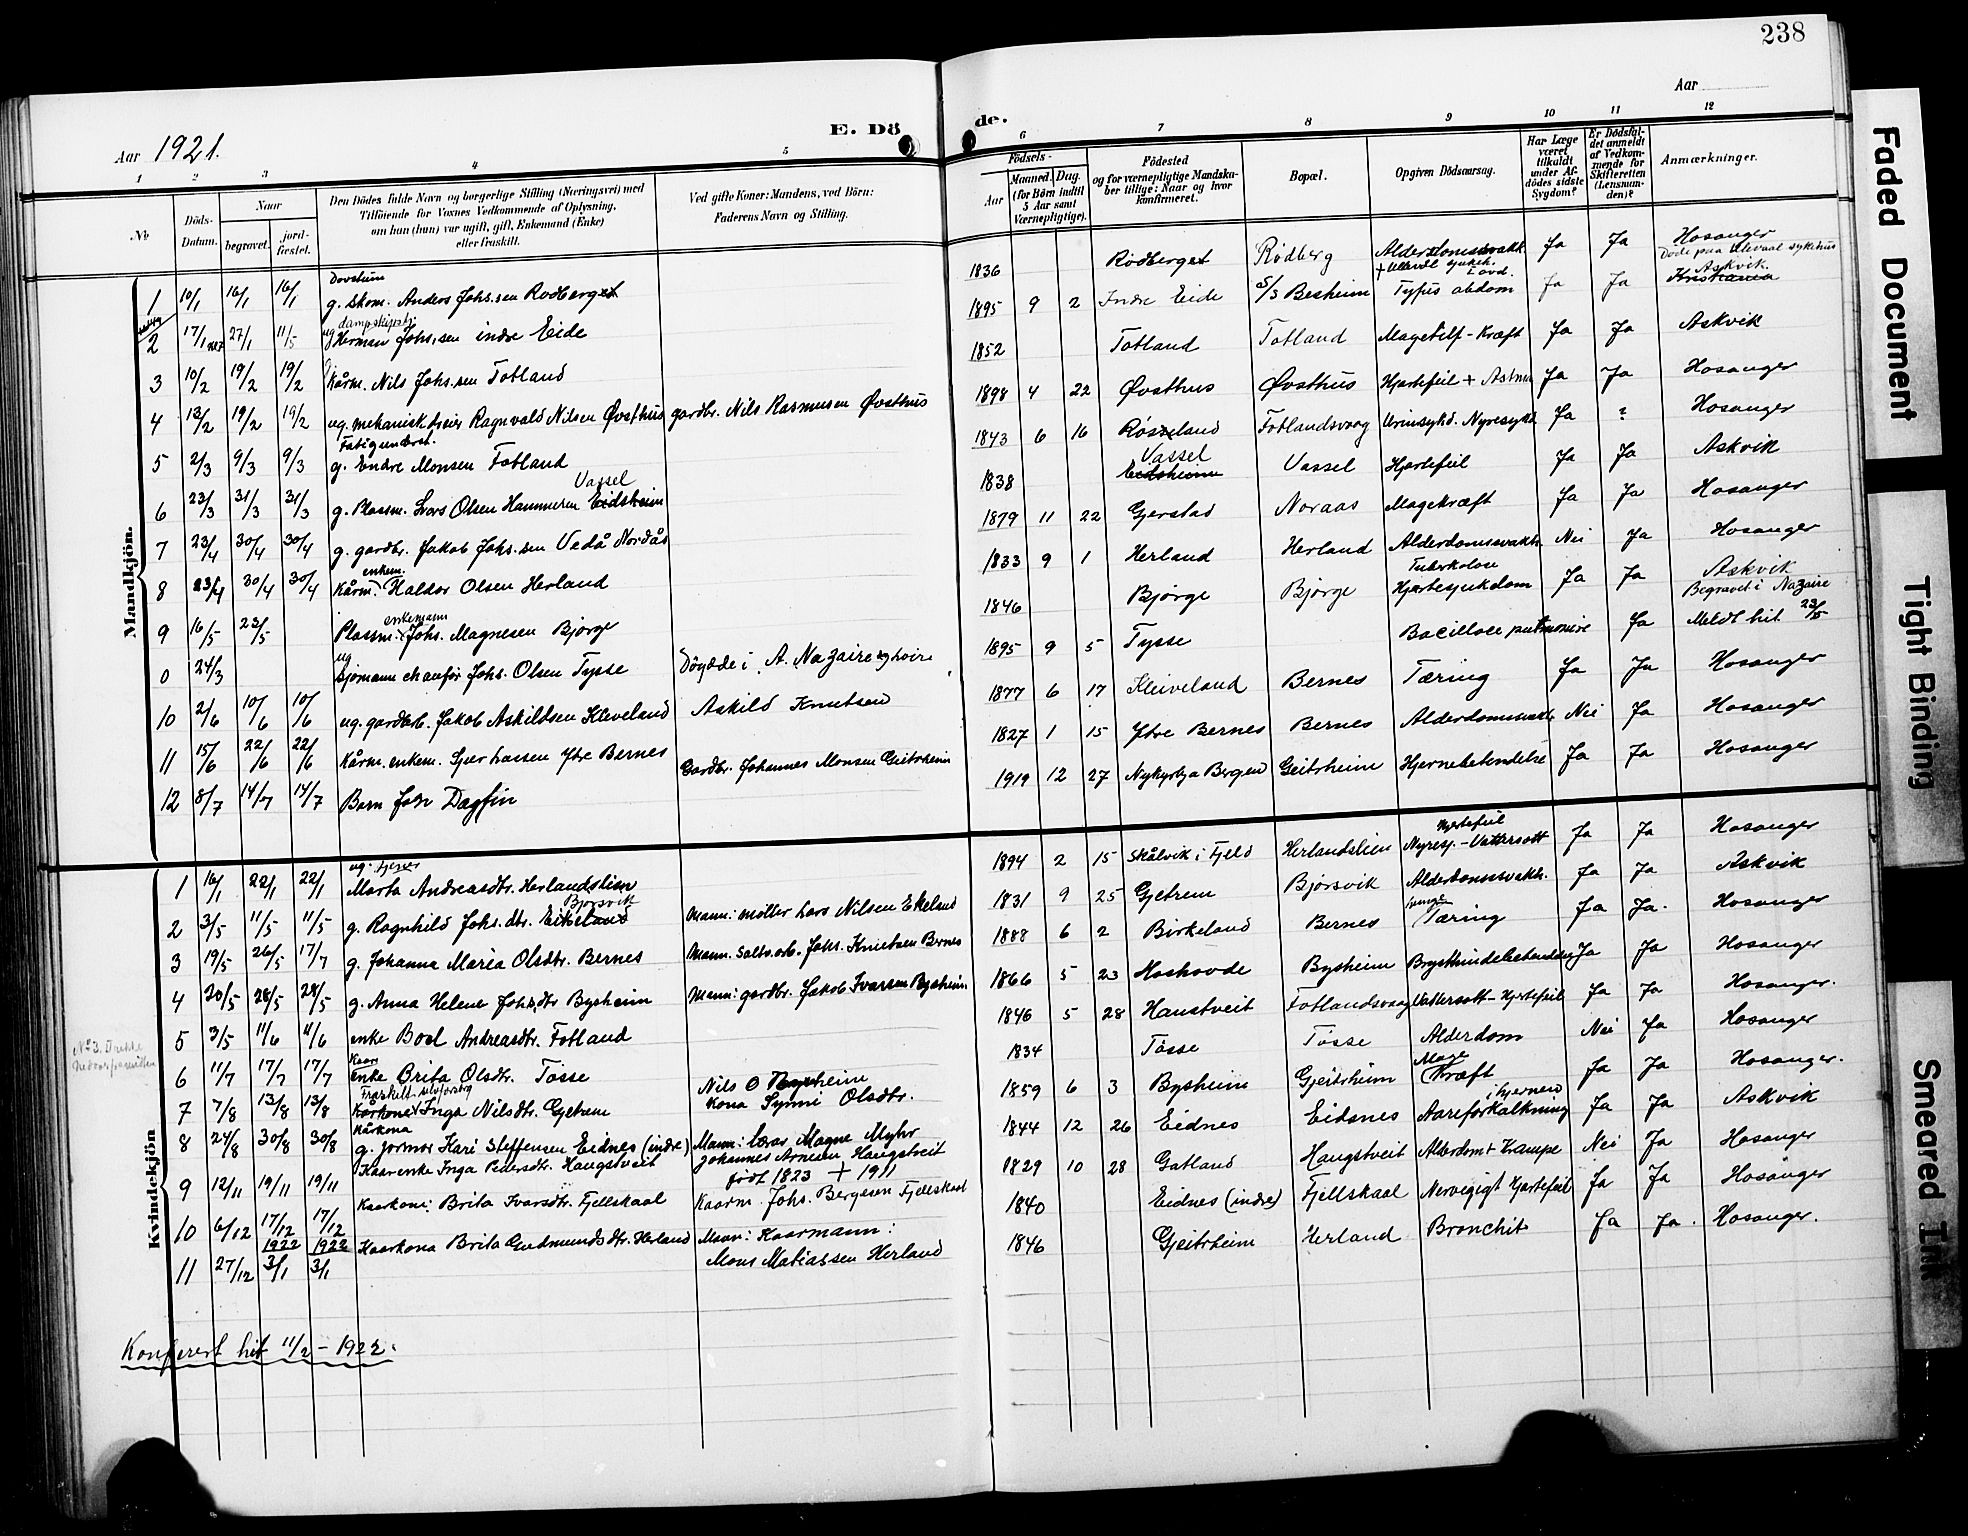 238
Aar
Aar 1921.
E. Dö
de.
1 2 3 4 5
6 7 8 9 10 11 12
No
Döds-Datum.
Naar
begravet.
jord-fæstet.
Den Dödes fulde Navn og borgerlige Stilling (Næringsvei) med
Tilföiende for Voxnes Vedkommende af Oplysning,
om han (hun) var ugift, gift, Enkemand (Enke)
eller fraskilt.
Ved gifte Koner: Mandens, ved Börn:
Faderens Navn og Stilling.
Födsels-
Aar
Maaned. Dag.
(for Börn indtil
5 Aar samt
Værnepligtige).
Födested
og for værnepligtige Mandska-
ber tillige: Naar og hvor
konfirmeret.
Bopæl.
Opgiven Dödsaarsag.
Har Læge
været
tilkaldt
under Af-
dödes sidste
Sygdom?
Er Dödsfal-
det anmeldt
af Vedkom-
mende for
Skifteretten
(Lensman-
den)?
Anmærkninger.
Mandkjön.
1 10/1 16/1 16/1 g. skom. Anders Johs.sen Rødberget 1836 Rødberget Rødberg Alderdomssvakh. Ja Ja Hosanger
Døde paa Ullevaal sykehus
2 17/1 27/1 11/5 ug dampskipsfi. Herman Johs.sen indre Eide 1895 9 2 Indre Eide S/S Besheim Tyfus abdom Ja Ja Kristiania Askvik.
3 10/2 19/2 19/2 Kårm. Nils Johs.sen Totland 1852 Totland Totland Magetilf-Kræft Ja Ja Askvik
4 13/2 19/2 19/2 ug. mekanisk Ragnvald Nilsen Øvsthus gardbr. Nils Rasmusen Øvsthus 1898 4 22 Øvsthus Øvsthus Hjertefeil + Astma Ja Ja Hosanger
5 2/3 9/3 9/3 g. Endre Monsen Fotland 1843 6 16 Røsseland Fotlandsvaag Urinsykd. Nyresykd. Ja ? Hosanger
6 23/3 31/3 31/3 g. Plassm. Ivars Olsen Hammeren Eidsheim Vassel 1838 Eidsheim Vassel Vassel Hjertefeil Ja Ja Askvik
7 23/4 30/4 30/4 g. gardbr. Jakob Johs.sen Vedå Nordås 1879 11 22 Gjerstad Noraas Magekræft Ja Ja Hosanger
8 23/4 30/4 30/4 Kårm. enkem. Haldor Olsen Herland 1833 9 1 Herland Herland Alderdomssvakh. Nei Ja Hosanger
9 16/5 23/5 Plassm. enkemann Johs. Magnesen Bjørge 1846 Bjørge Bjørge Tuberkolose Hjertesjukdom Ja Ja Askvik
Begravet i Nazaire
0 24/3 ug Sjømann chaufør Johs. Olsen Tysse Døydde i A. Nazaire 1895 9 5 Tysse Bacillose pulmonire Ja Meldt hit 23/5
10 2/6 10/6 10/6 ug. gardarb. Jakob Askildsen Kleveland Askild Knutsen 1877 6 17 Kleiveland Bernes Tæring Ja Ja Hosanger
11 15/6 22/6 22/6 Kårm. enkem. Sjur Larssen Ytre Bernes 1827 1 15 Ytre Bernes Bernes Alderdomssvakh. Nei Ja Hosanger
12 8/7 14/7 14/7 Barn John Dagfin Gardbr. Johannes Monsen Geitrheim 1919 12 27 Nykyrkja Bergen Geitrheim Hjernebetendelse Ja Ja Hosanger
Kvindekjön
1 16/1 22/1 22/1 ug. tjener Marta Andreasdtr. Herlandslien 1894 2 15 Skålvik i Fjeld Herlandslien Nyresj.-Vattersott Hjertefeil Ja Ja Hosanger
2 3/5 11/5 11/5 g. Ragnhild Johs.dtr. Eikeland Bjørsvik Mann: møller Lars Nilsen Ekeland 1831 9 25 Gjetrem Bjørsvik Alderdomssvakh. Ja Ja Askvik
3 19/5 26/5 17/7 g. Johanna Maria Olsdtr. Bernes Mann. Johs. Knutsen Bernes 1888 6 2 Birkeland Bernes Tæring Ja Ja. Hosanger
4 20/5 28/5 28/5 g. Anna Helene Johs.dtr Bysheim Mann: gardbr. Jakob Ivarsen Bysheim 1866 5 23 Hoshovde Bysheim Brysthindebetendelse Ja Ja Hosanger
5 3/5 11/6 11/6 enke Boel Andreasdtr. Fotland 1846 5 28 Haustveit Fotlandsvaag Vattersott-Hjertefeil Ja Ja Hosanger.
6 11/7 17/7 17/7 Kaar enke Brita Olsdtr. Tosse 1834 Tosse Tosse Alderdom Nei Ja Hosanger
7 7/8 13/8 13/8 Fraskilt selvforsørg Kårkona Inga Nilsdtr. Gjetrem Nils O Bysheim Kona Synni Olsdtr. 1859 6 3 Bysheim Gjeitrheim Mage Kræft Ja Ja Hosanger.
8 24/8 30/8 30/8 Kårkona g. jormor Kari Steffensen Eidnes (indre) Mann: lærar Magne Myhr 1844 12 26 Eidnes Eidsnes Aareforkalkning i hjernen Ja Ja Askvik
9 12/11 19/11 19/11 Kaarenke Inga Pedersdtr. Haugstveit Johannes Arnesen Haugstveit født 1823 + 1911 1829 10 28 Gatland Haugstveit Alderdom + Krampe Nei Ja Hosanger
10 6/12 17/12 17/12 Kaarkone: Brita Ivarsdtr. Fjellskaal Kaarm. Johs. Bergesen Fjellskaal 1840 Eidnes (indre) Fjellskaal Nervegigt Hjertefeil Ja Ja Hosanger
11 27/12 1922 3/1 1922 3/1 Kaarkona Brita Gudmundsdtr. Herland Mann: Kaarmann: Mons Matiassen Herland 1846 Gjeitrheim Herland Bronchit Ja Ja. Hosanger.
Konferert hit 11/2 - 1922.
Faded Document
Tight Binding
Smeared Ink